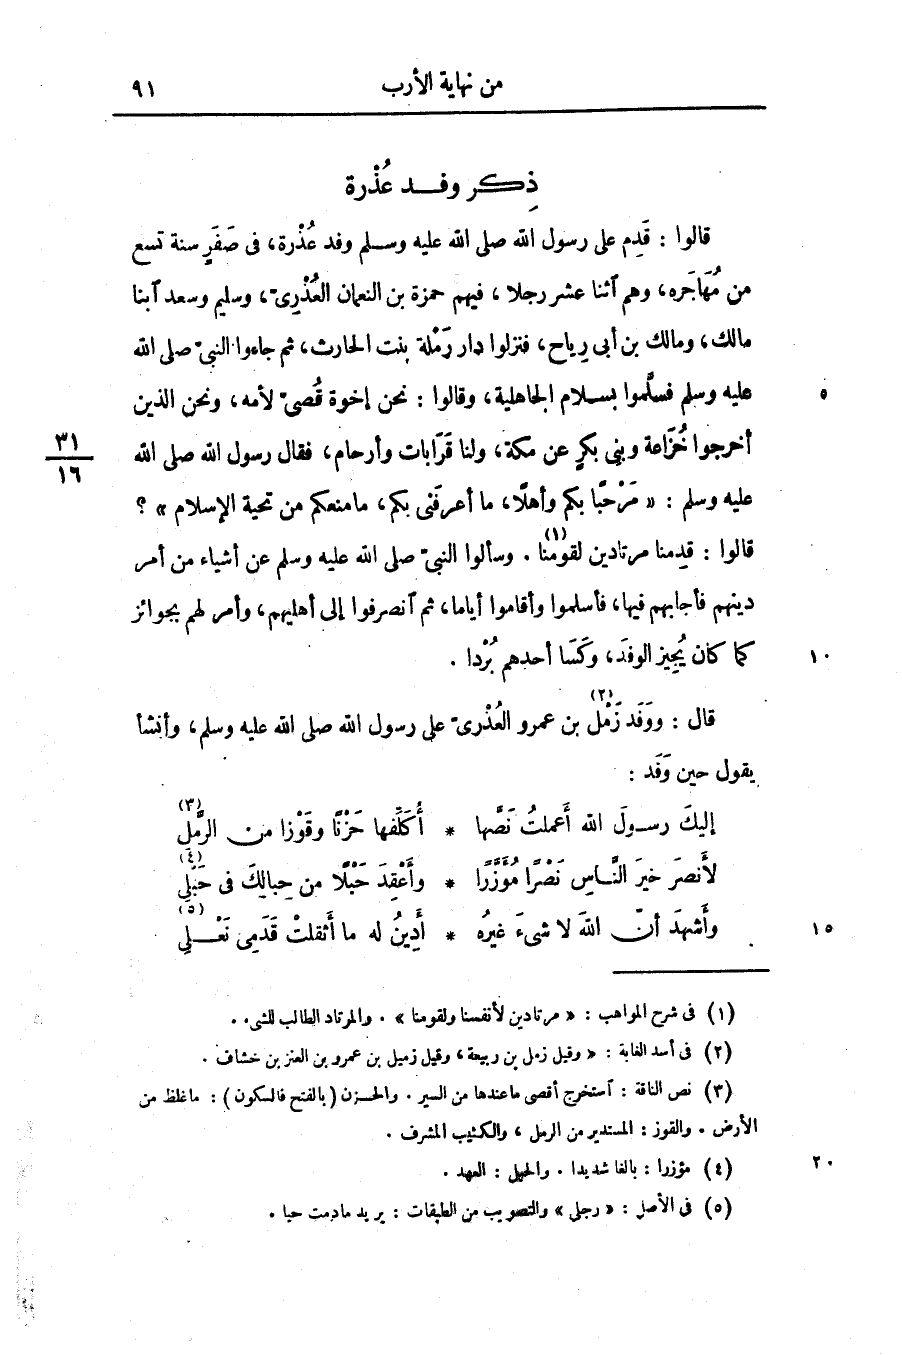 من نهاية الأرب ٩١
ذِكر وفد عُذْرة
قالوا : قَدِم على رسول الله صلى الله عليه وسلم وفد عُذْرة، فى صَفَرٍ سنة تسع
من مُهَاجَره، وهم آثنا عشر رجلا، فيهم حمزة بن النعمان العُذْرىّ، وسليم وسعد آبنا
مالك، ومالك بن أبى رِياح، فنزلوا دار رَمْلة بنت الحارث، ثم جاءوا النبىّ صلى الله
عليه وسلم فسلَّموا بسلام الجاهلية، وقالوا : نحن إخوة قُصىّ لأمه، ونحن الذين ٥
أخرجوا خُزَاعة وبنى بكرٍ عن مكة، ولنا قَرَابات وأرحام، فقال رسول الله صلى الله ٣١/١٦
عليه وسلم : « مَرْحبًا بكم وأهلًا، ما أعرفَنى بكم، ما منعكم من تحية الإسلام » ؟
قالوا : قدِمنا مرتادين لقومنا (١) . وسألوا النبىّ صلى الله عليه وسلم عن أشياء من أمر
دينهم فأجابهم فيها، فأسلموا وأقاموا أياما، ثم آنصرفوا إلى أهليهم، وأمر لهم بجوائز
كما كان يُجِيز الوفدَ، وكَسَا أحدهم بُرْدا . ١٠
قال : ووَفَد زَمْل (٢) بن عمرو العُذْرىّ على رسول الله صلى الله عليه وسلم، وأنشأ
يقول حين وَفَد :
إليكَ رسولَ الله أَعملتُ نَصَّها * أُكَلِّفها حَزْنًا وقَوْزا من الرَّمْلِ (٣)
لأَنصرَ خيرَ النَّاسِ نَصْرًا مُؤَزَّرًا * وأَعْقِدَ حَبْلًا من حِبالِكَ فى حَبْلِى (٤)
وأَشهدَ أنّ اللهَ لا شىءَ غيرُه * أَدِينُ له ما أَثقلتْ قَدَمِى نَعْلِى (٥) ١٥
(١) فى شرح المواهب : « مرتادين لأنفسنا ولقومنا » . والمرتاد الطالب للشىء .
(٢) فى أسد الغابة : « وقيل زمل بن ربيعة، وقيل زميل بن عمرو بن العنز بن خشاف .
(٣) نص الناقة : آستخرج أقصى ما عندها من السير . والحزن (بالفتح فالسكون) : ما غلظ من
الأرض . والقوز : المستدير من الرمل، والكثيب المشرف .
(٤) مؤزرا : بالغا شديدا . والحبل : العهد . ٢٠
(٥) فى الأصل : « رجلى » والتصويب من الطبقات : يريد ما دمت حيا .